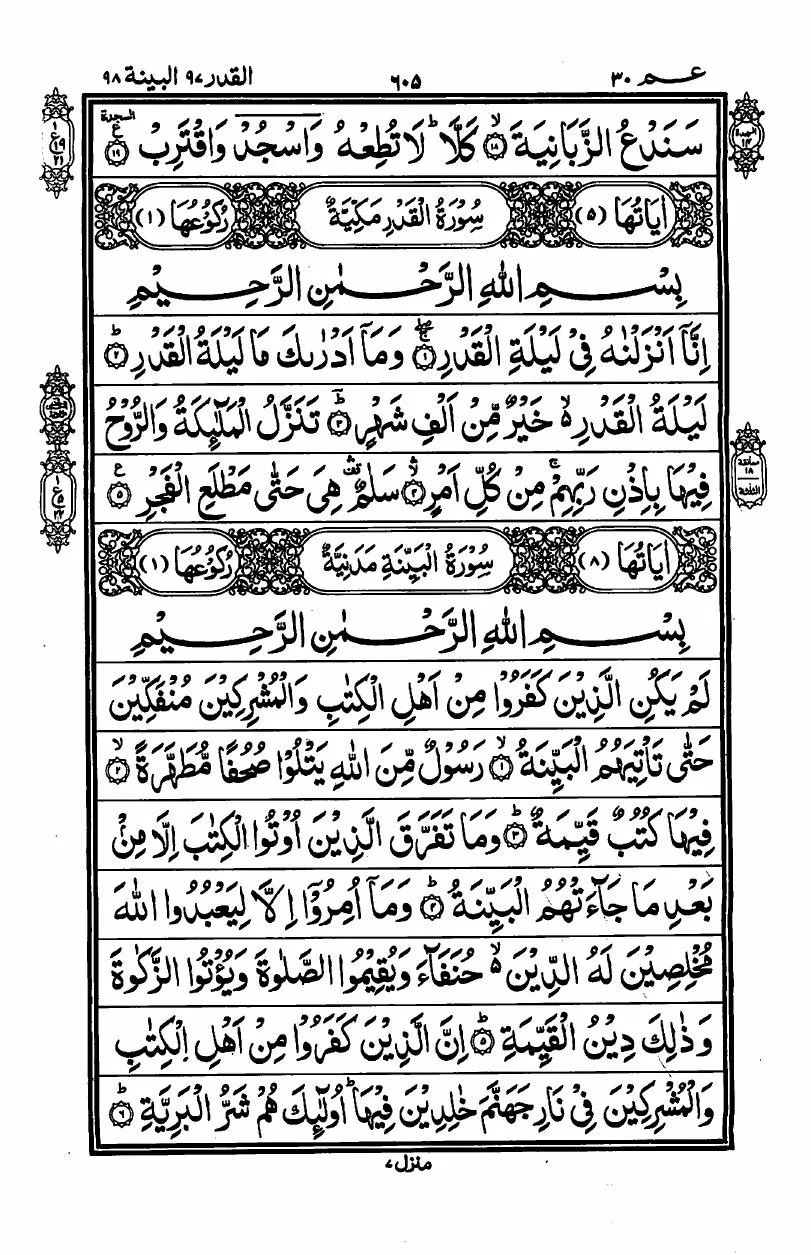 عم ٣٠
٦٠٥
القدر ٩٧ البينة ٩٨
السجدة
سَنَدْعُ الزَّبَانِيَةَ ۙ﴿١٨﴾ كَلَّا ؕ لَا تُطِعْهُ وَاسْجُدْ وَاقْتَرِبْ ﴿١٩﴾ ع
اٰيَاتُهَا (٥) سُوْرَةُ الْقَدْرِ مَكِّيَّةٌ رُكُوْعُهَا (١)
بِسْمِ اللّٰهِ الرَّحْمٰنِ الرَّحِيْمِ
اِنَّاۤ اَنْزَلْنٰهُ فِيْ لَيْلَةِ الْقَدْرِ ۚۖ﴿١﴾ وَمَاۤ اَدْرٰىكَ مَا لَيْلَةُ الْقَدْرِ ؕ﴿٢﴾
لَيْلَةُ الْقَدْرِ ۙ۬ خَيْرٌ مِّنْ اَلْفِ شَهْرٍ ؕؔ﴿٣﴾ تَنَزَّلُ الْمَلٰٓئِكَةُ وَالرُّوْحُ
فِيْهَا بِاِذْنِ رَبِّهِمْ ۚ مِنْ كُلِّ اَمْرٍ ۙۛ﴿٤﴾ سَلٰمٌ ۛ۟ هِيَ حَتّٰى مَطْلَعِ الْفَجْرِ ﴿٥﴾ ع
اٰيَاتُهَا (٨) سُوْرَةُ الْبَيِّنَةِ مَدَنِيَّةٌ رُكُوْعُهَا (١)
بِسْمِ اللّٰهِ الرَّحْمٰنِ الرَّحِيْمِ
لَمْ يَكُنِ الَّذِيْنَ كَفَرُوْا مِنْ اَهْلِ الْكِتٰبِ وَالْمُشْرِكِيْنَ مُنْفَكِّيْنَ
حَتّٰى تَاْتِيَهُمُ الْبَيِّنَةُ ۙ﴿١﴾ رَسُوْلٌ مِّنَ اللّٰهِ يَتْلُوْا صُحُفًا مُّطَهَّرَةً ۙ﴿٢﴾
فِيْهَا كُتُبٌ قَيِّمَةٌ ؕ﴿٣﴾ وَمَا تَفَرَّقَ الَّذِيْنَ اُوْتُوا الْكِتٰبَ اِلَّا مِنْۢ
بَعْدِ مَا جَآءَتْهُمُ الْبَيِّنَةُ ؕ﴿٤﴾ وَمَاۤ اُمِرُوْۤا اِلَّا لِيَعْبُدُوا اللّٰهَ
مُخْلِصِيْنَ لَهُ الدِّيْنَ ۙ۬ حُنَفَآءَ وَيُقِيْمُوا الصَّلٰوةَ وَيُؤْتُوا الزَّكٰوةَ
وَذٰلِكَ دِيْنُ الْقَيِّمَةِ ؕ﴿٥﴾ اِنَّ الَّذِيْنَ كَفَرُوْا مِنْ اَهْلِ الْكِتٰبِ
وَالْمُشْرِكِيْنَ فِيْ نَارِ جَهَنَّمَ خٰلِدِيْنَ فِيْهَا ؕ اُولٰٓئِكَ هُمْ شَرُّ الْبَرِيَّةِ ؕ﴿٦﴾
منزل ٧